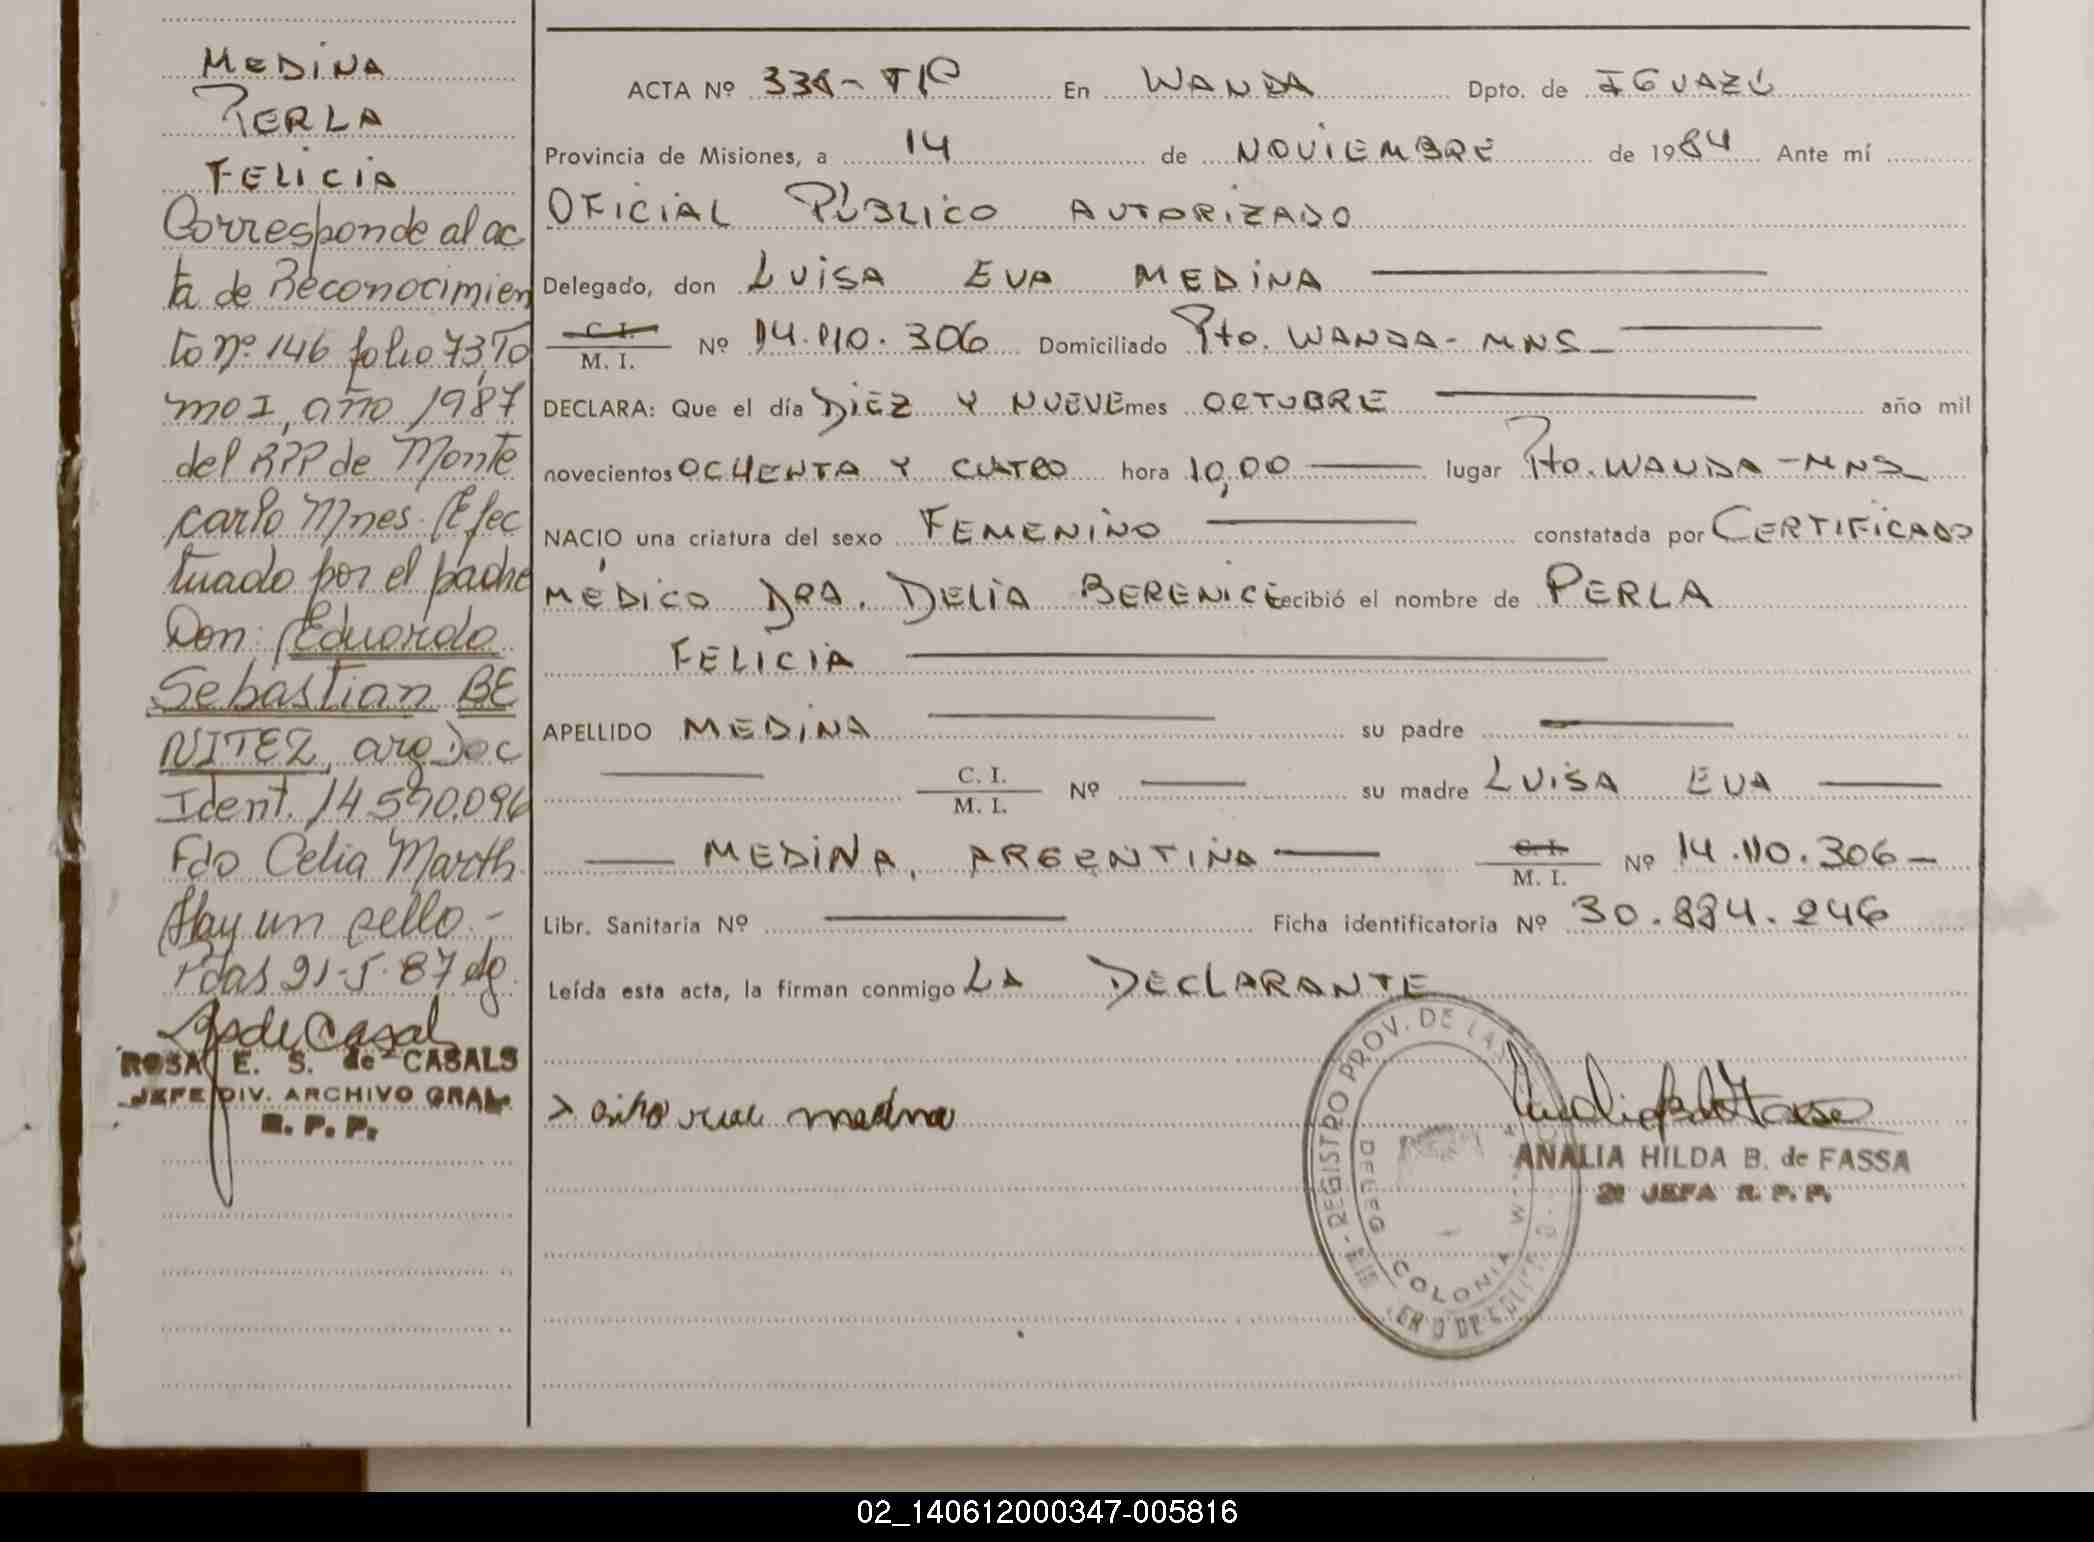 MEDINA
PERLA
FELICIA
Corresponde al ac
ta de Reconocimien
to nº 146 folio 73, To
mo I, año 1987
del RPP de Monte
carlo Mnes. Efec
tuado por el padre
Don: Eduardo
Sebastian BE
NITEZ, arg Doc
Ident. 14.590.096
Fdo Celia Marth.
Hay un sello.-
Pdas 21-5-87 dg.
ROSA E. S. de CASALS
JEFE DIV. ARCHIVO GRAL.
R. P. P.
ACTA Nº 336-TP En WANDA Dpto. de IGUAZÚ
Provincia de Misiones, a 14 de NOVIEMBRE de 1984 Ante mí
OFICIAL PÚBLICO AUTORIZADO
Delegado, don LUISA EVA MEDINA
C. I.
M. I. Nº 14.110.306 Domiciliado Pto. WANDA- MNS
DECLARA: Que el día DIEZ Y NUEVE mes OCTUBRE año mil
novecientos OCHENTA Y CUATRO hora 10,00 lugar Pto. WANDA-MNS
NACIO una criatura del sexo FEMENINO constatada por CERTIFICADO
MÉDICO DRA. DELIA BERENICE recibió el nombre de PERLA
FELICIA
APELLIDO MEDINA su padre
C. I.
M. I. Nº su madre LUISA EVA
MEDINA, ARGENTINA C. I.
M. I. Nº 14.110.306-
Libr. Sanitaria Nº Ficha identificatoria Nº 30.884.246
Leída esta acta, la firman conmigo LA DECLARANTE
REGISTRO PROV. DE LAS
COLONIA W
medina
ANALIA HILDA B. de FASSA
2º JEFA R. P. P.
02_140612000347-005816